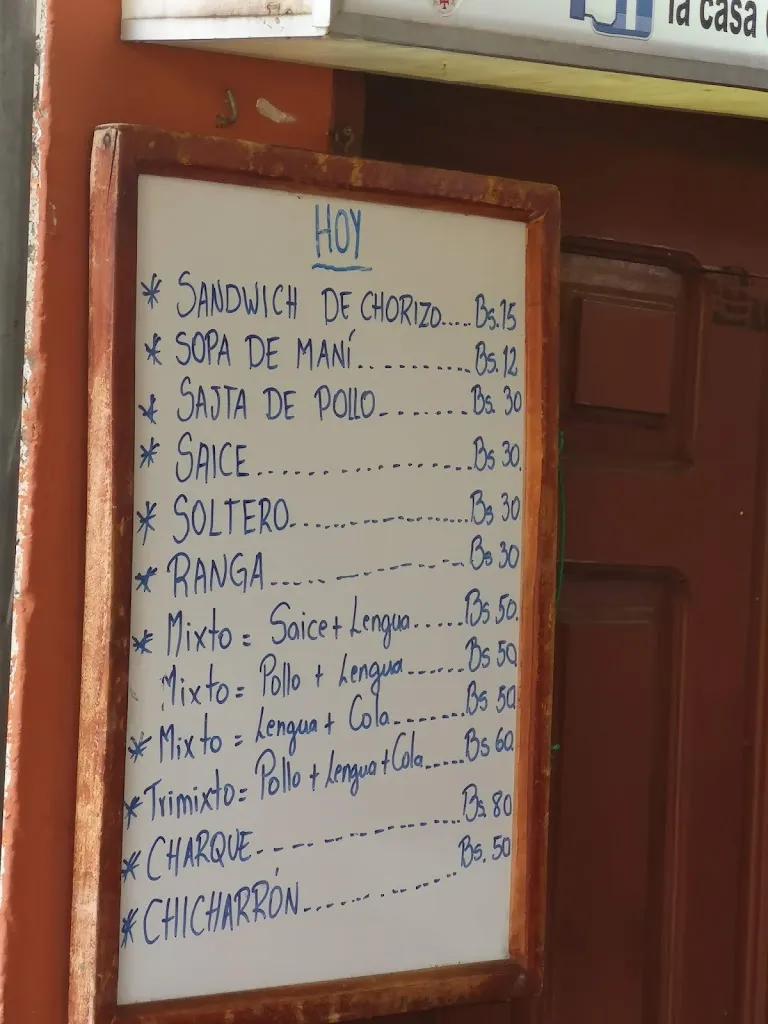 la casa
HOY
* SANDWICH DE CHORIZO.....Bs.15
* SOPA DE MANÍ..........Bs.12
* SAJTA DE POLLO.......Bs. 30
* SAICE..................Bs 30.
* SOLTERO..................Bs 30
* RANGA..................Bs 30
* Mixto = Saice + Lengua.....Bs 50.
Mixto = Pollo + Lengua......Bs 50
* Mixto = Lengua + Cola.......Bs 50
* Trimixto = Pollo + Lengua + Cola.....Bs 60.
* CHARQUE..................Bs. 80
* CHICHARRÓN..................Bs. 50